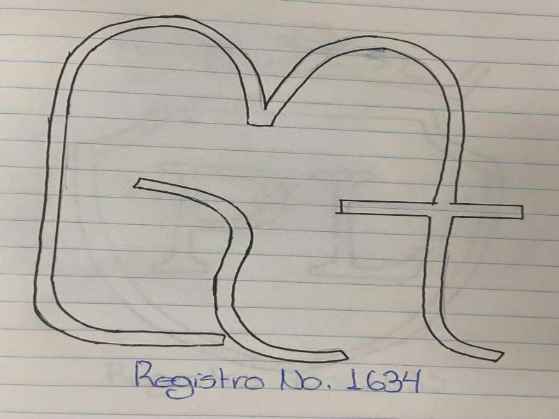 Registro No. 1634